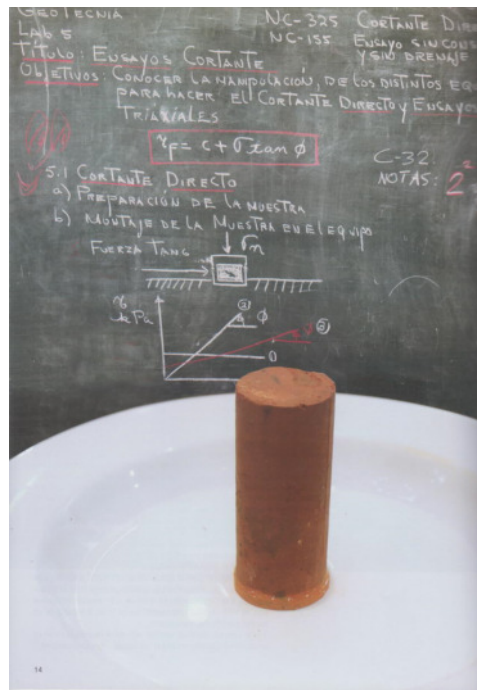 GEOTECNIA
LAB 5
NC-325 CORTANTE DIRE
NC-155 ENSAYO SIN CONS
Y SIN DRENAJE
TÍTULO: ENSAYOS CORTANTE
OBJETIVOS: CONOCER LA MANIPULACIÓN, DE LOS DISTINTOS EQU
PARA HACER EL CORTANTE DIRECTO Y ENSAYOS
TRIAXIALES
τf = c + σ tan φ
C-32.
NOTAS: 2
5.1 CORTANTE DIRECTO
a) PREPARACIÓN DE LA MUESTRA
b) MONTAJE DE LA MUESTRA EN EL EQUIPO
FUERZA TANG
σn
τ
kPa
φ
14